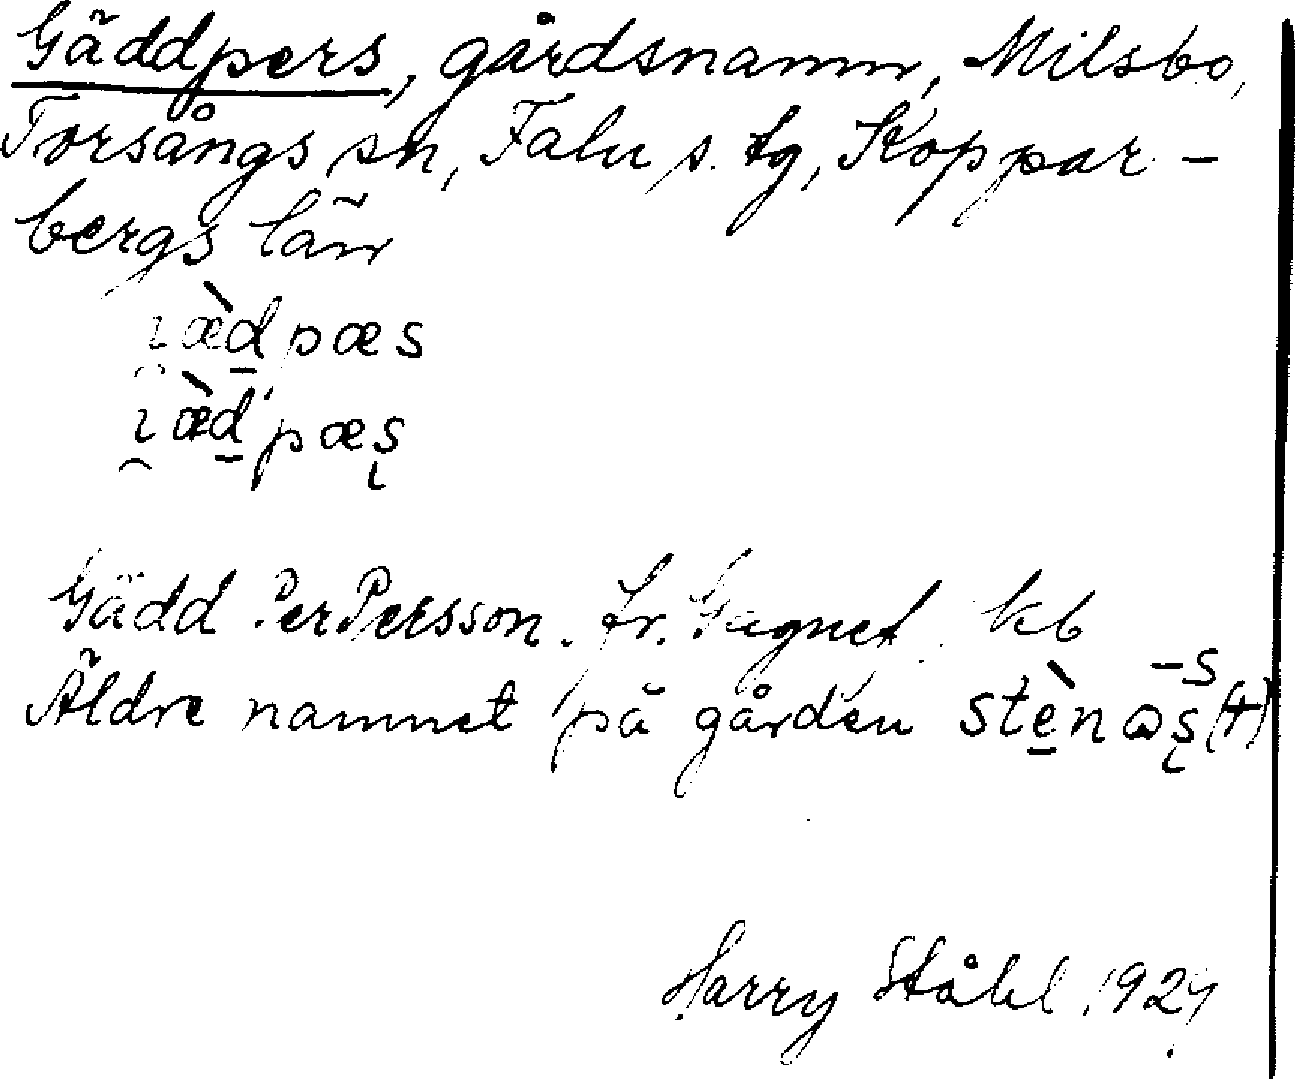 Gäddpers, gårdsnamn, Milsbo,
Torsångs sn, Falu s. tg, Koppar-
bergs län
ɩ̯æ̀d̲pæs
ɩ̯æ̀d̲pæʂ
Gädd Per Persson. fr. Gagnef. kb
Äldre namnet på gården
Harry Ståhl 1927